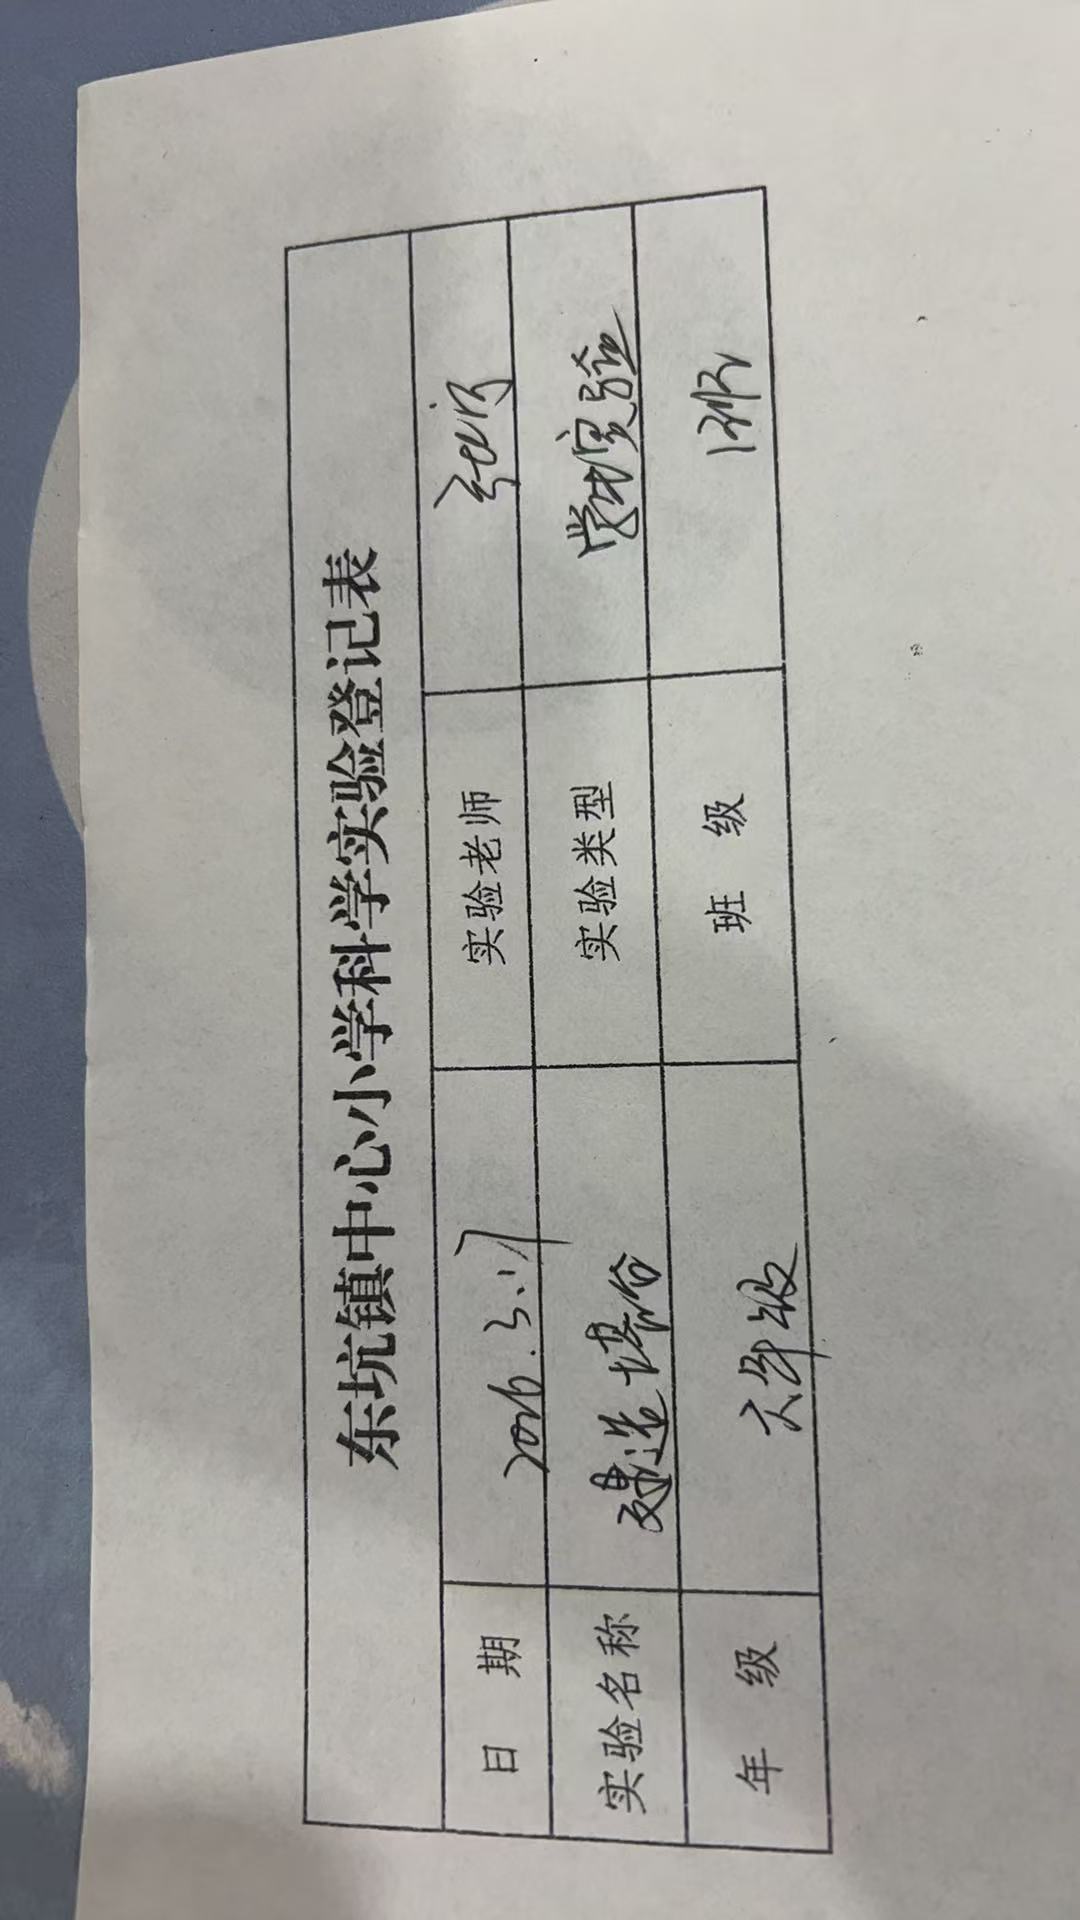 东坑镇中心小学科学实验登记表
日 期 2026.3.17 实验老师
实验名称 建造塔台 实验类型 学生实验
年 级 六年级 班 级 1班